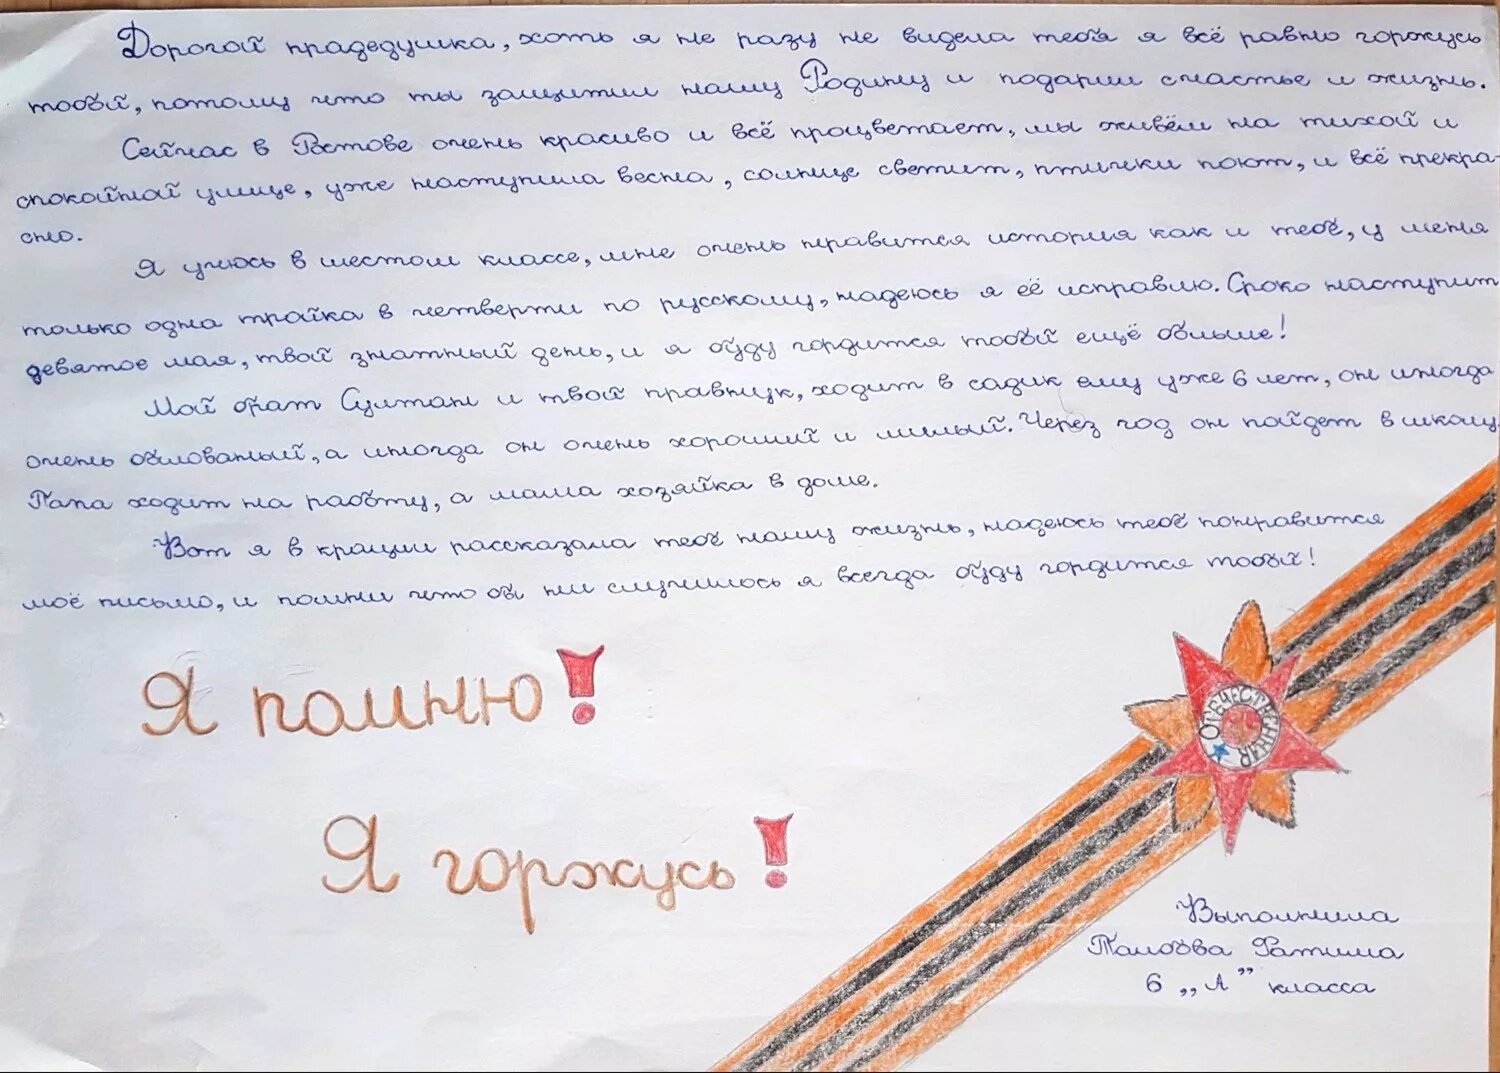 Дорогой прадедушка, хоть я не разу не видела тебя я всё равно горжусь
тобой, потому что ты защитил нашу Родину и подарил счастье и жизнь.
Сейчас в Ростове очень красиво и всё процветает, мы живём на тихой и
спокойной улице, уже наступила весна, солнце светит, птички поют, и всё прекра-
сно.
Я учюсь в шестом классе, мне очень нравится история как и тебе, у меня
только одна тройка в четверти по русскому, надеюсь я её исправлю. Сроко наступит
девятое мая, твой знатный день, и я буду гордится тобой ещё больше!
Мой брат Султан и твой правнук, ходит в садик ему уже 6 лет, он иногда
очень балованый, а иногда он очень хороший и милый. Через год он пойдет в школу.
Папа ходит на работу, а мама хозяйка в доме.
Вот я в крации рассказала тебе нашу жизнь, надеюсь тебе понравится
моё письмо, и помни что бы ни случилось я всегда буду гордится тобой!
Я помню!
Я горжусь!
ОТЕЧЕСТВЕННАЯ
Выполнила
Фатима
6 „А” класса